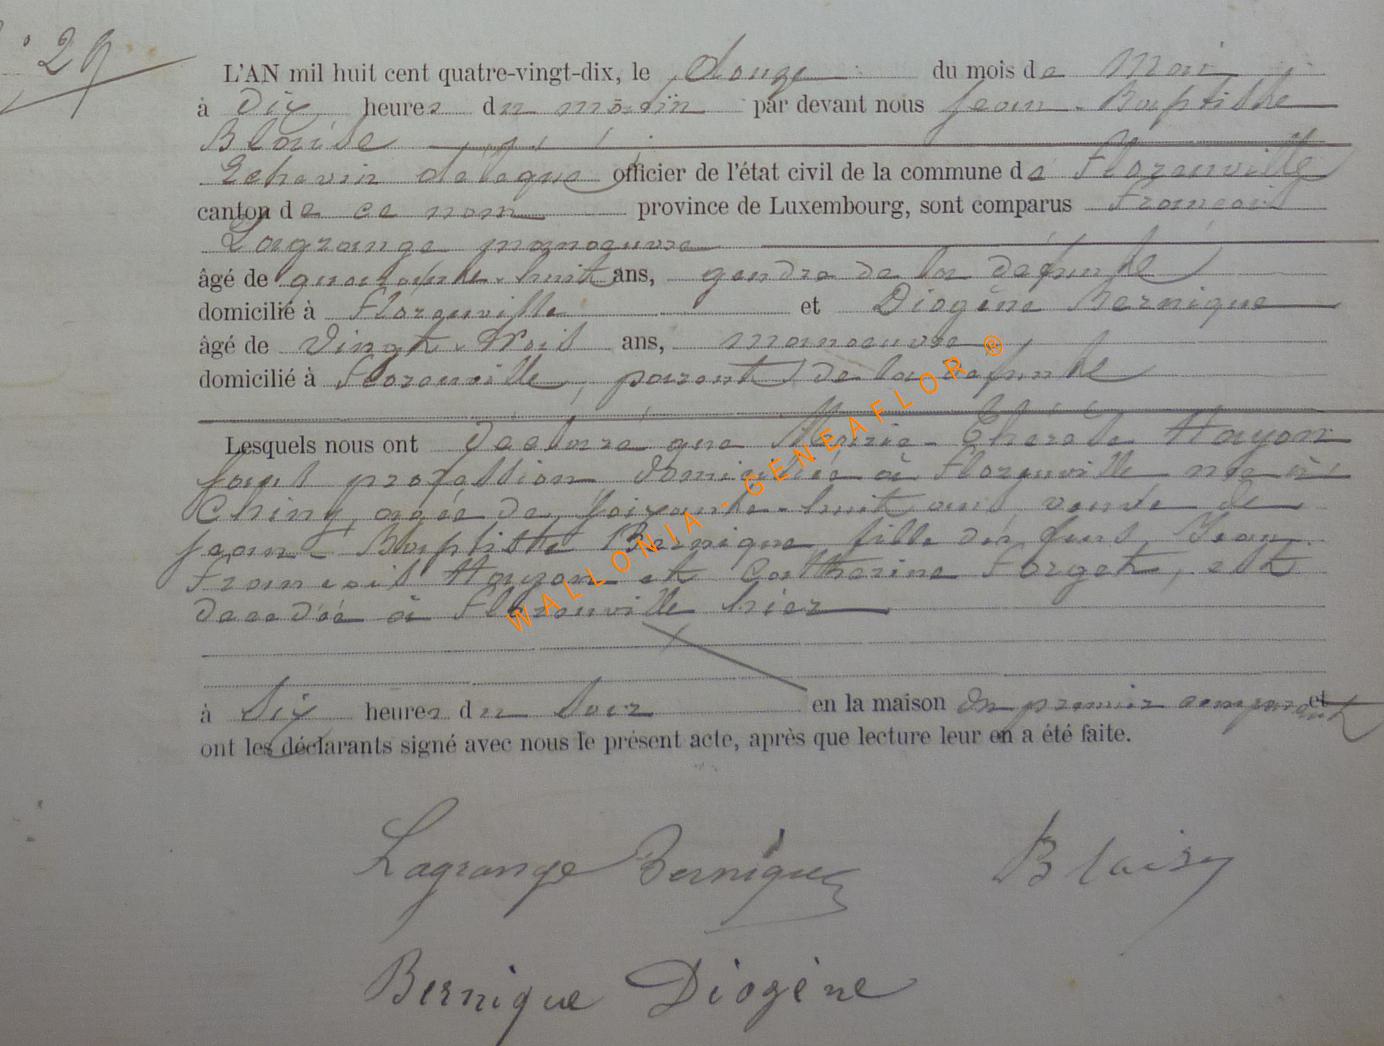 N° 29
L'AN mil huit cent quatre-vingt-dix, le douze du mois de Mai
à dix heures du matin par devant nous Jean-Baptiste
Blaise
Echevin délégué officier de l'état civil de la commune de Florenville
canton de ce nom province de Luxembourg, sont comparus François
Lagrange manoeuvre
âgé de quarante-huit ans, gendre de la défunte
domicilié à Florenville et Diogène Bernique
âgé de vingt-trois ans, manoeuvre
domicilié à Florenville, parent de la défunte
Lesquels nous ont déclaré que Marie-Thérèse Hayon
sans profession domiciliée à Florenville née à
Chiny, agée de soixante-huit ans veuve de
Jean-Baptiste Bernique fille des feus Jean
François Hayon et Catherine Forget, est
décédée à Florenville hier
à six heures du soir en la maison du premier comparant et
ont les déclarants signé avec nous le présent acte, après que lecture leur en a été faite.
Lagrange Bernique Blaise
Bernique Diogène
WALLONIA - GENEAFLOR ®